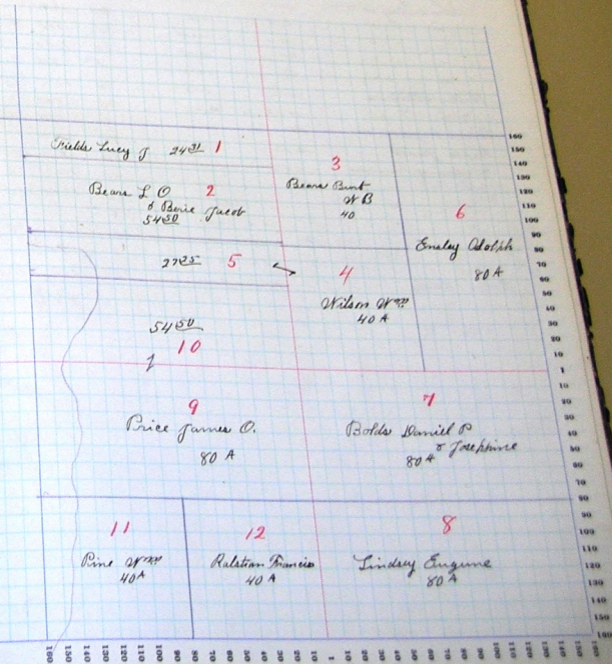 Fields Lucy J 24 31 1
Bears L O 2
& Jacob
54 50
3
Bears Burt
W B
40
6
Ensley Adolph
80 A
27 25 5
4
Wilson Wm
40 A
54 50
10
9
Price James O.
80 A
7
Bolds Daniel P
& Josephine
80 A
11
Pine Wm
40 A
12
Ralston Francis
40 A
8
Lindsey Eugene
80 A
160
150
140
130
120
110
100
90
80
70
60
50
40
30
20
10
1
10
20
30
40
50
60
70
80
90
100
110
120
130
140
150
160 150 140 130 120 110 100 90 80 70 60 50 40 30 20 10 1 10 20 30 40 50 60 70 80 90 100 110 120 130 140